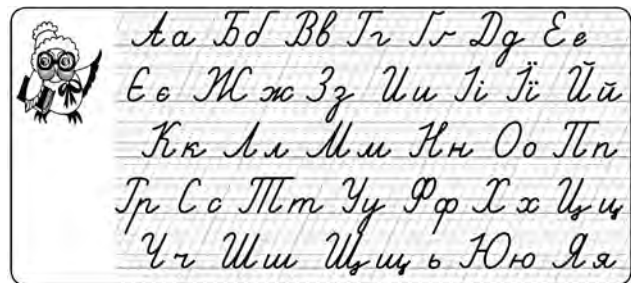 Аа Бб Вв Гг Ґґ Дд Ее
Єє Жж Зз Ии Іі Її Йй
Кк Лл Мм Нн Оо Пп
Рр Сс Тт Уу Фф Хх Цц
Чч Шш Щщ ь Юю Яя